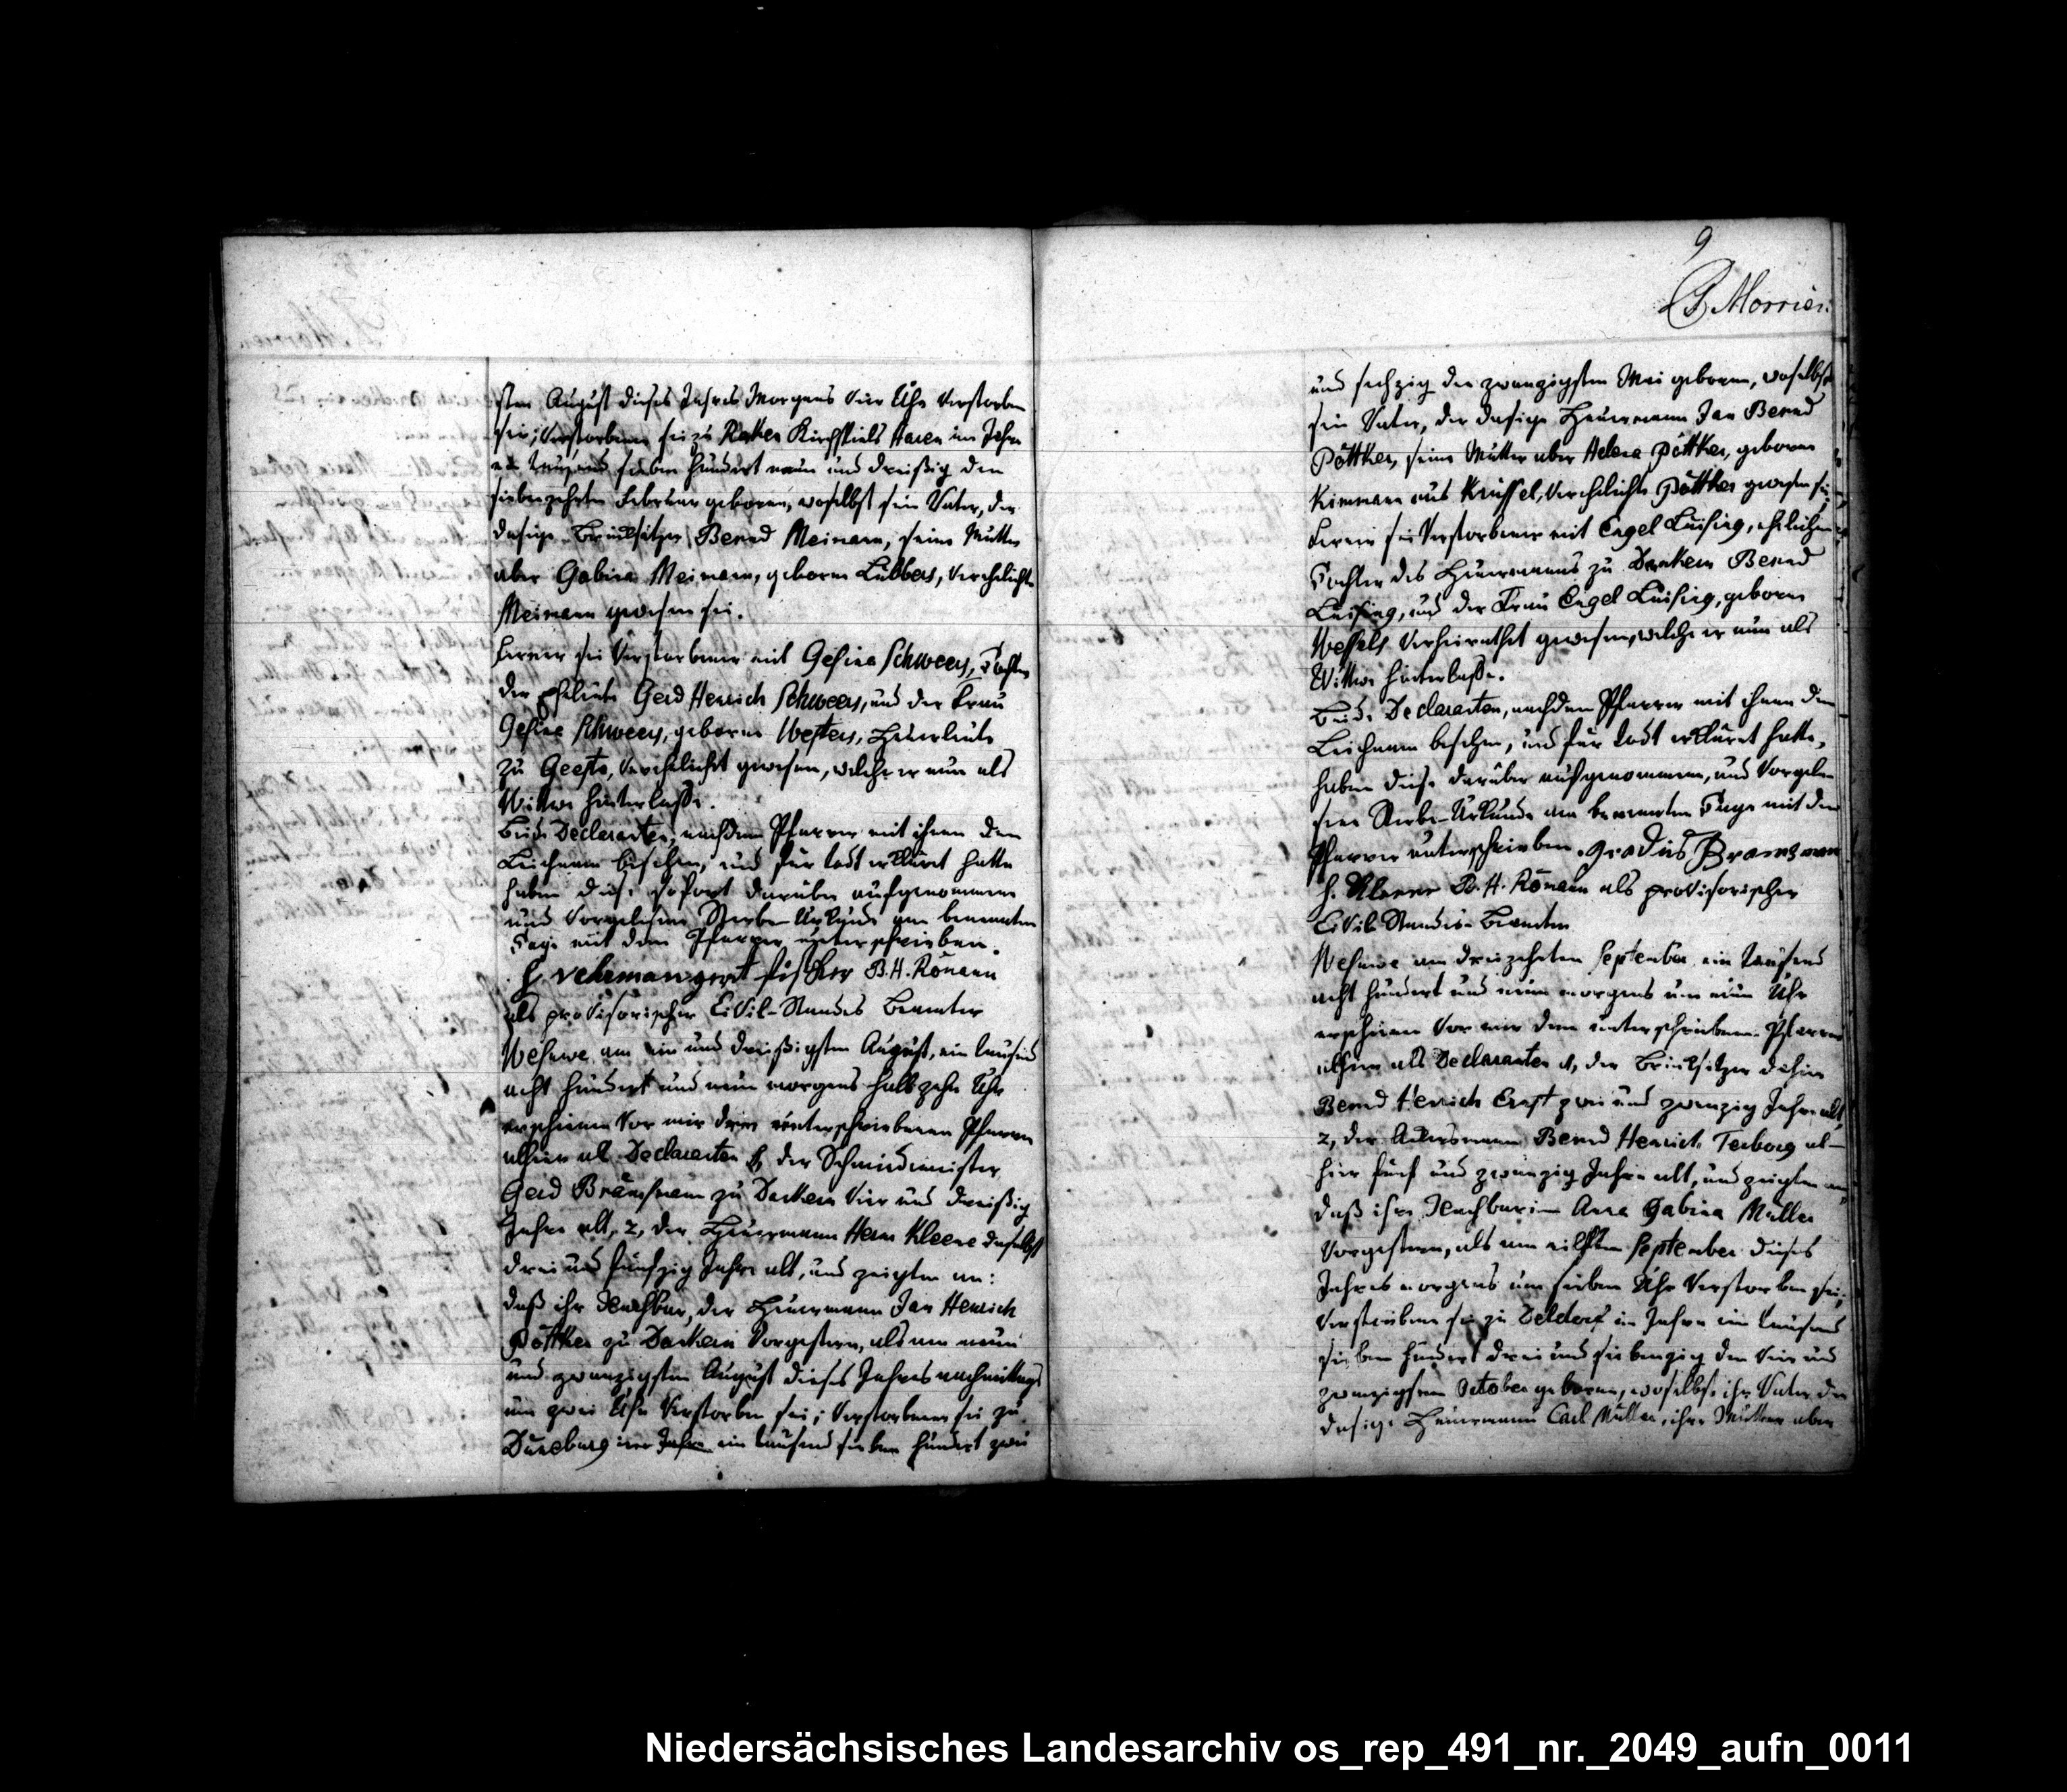 sten August dieses Jahres Morgens vier Uhr verstorben
sei; verstorbener sei zu Raken Kirchspiels Haren im Jahre
ein tausend sieben hundert neun und dreißig den
siebenzehnten Februar geboren, woselbst sein Vater, der
dasige Brinksitzer Bernd Meinann, seine Mutter
aber Gabina Meinann, geborne Lübbers, verehelichte
Meinann gewesen sei.
Ferner sei verstorbener mit Gesina Schweers, Tochter
der Eheleute Gerd Henrich Schweers, und der Frau
Gesine Schweers, geborne Westers, Heuerleute
zu Geeste, verehelicht gewesen, welche er nun als
Wittwe hinterlasse.
Beide Declaranten, nachdem Pfarrer mit ihnen den
Leichnam besehen, und für todt erkläret hatte
haben diese sofort darüber aufgenommene
und vorgelesene Sterbe-Urkunde am benannten
Tage mit dem Pfarrer unterschrieben.
H vehrman gerdt fischer B. H. Rönann
als provisorischer Civil-Standes Beamter
Wesuwe am ein und dreißigsten August, ein tausend
acht hundert und neun morgens halb zehn Uhr
erschienen vor mir dem unterschriebenen Pfarrer
alhier als Declaranten 1, der Schmiedemeister
Gerd Bramsmann zu Dankern vier und dreißig
Jahre alt, 2, der Heuermann Herm Kleene daselbst
drei und fünfzig Jahre alt, und zeigten an:
daß ihr Nachbar, der Heuermann Jan Henrich
Pöttker zu Dankern vorgestern, als am neun
und zwanzigsten August dieses Jahres nachmittags
um zwei Uhr verstorben sei; verstorbener sei zu
Düneburg im Jahre ein tausend sieben hundert zwei
9
Morrien
und sechzig den zwanzigsten Mai geboren, woselbst
sein Vater, der dasige Heuermann Jan Bernd
Pöttker, seine Mutter aber Helena Pöttker, geborne
Kinmann aus Krüssel, verehelichte Pöttker gewesen sei,
Ferner sei Verstorbener mit Engel Luising, ehelichen
Tochter des Heuermanns zu Dankern Bernd
Luising, und der Frau Engel Luising, geborne
Wessels verheirathet gewesen, welche er nun als
Wittwe hinterlasse.
Beide Declaranten, nachdem Pfarrer mit ihnen den
Leichnam besehen, und für todt erkläret hatte,
haben diese darüber aufgenommene, und vorgele-
sene Sterbe-Urkunde am benannten Tage mit dem
Pfarrer unterschrieben. gradus Bramsman
H. Klenne B. H. Rönann als provisorischer
Civil Standes-Beamter
Wesuwe am dreizehnten September ein tausend
acht hundert und neun morgens um neun Uhr
erschienen vor mir dem unterschriebenen Pfarrer
alhier als Declaranten 1, der Brinksitzer dahier
Bernd Henrich Ernst zwei und zwanzig Jahre alt,
2, der Ackersmann Bernd Henrich Terborg al-
hier fünf und zwanzig Jahre alt, und zeigten an
daß ihre Nachbarin Anna Gabina Müller
vorgestern, als am eilften September dieses
Jahres morgens um sieben Uhr verstorben sei;
verstorbene sei zu Deldorf im Jahre ein tausend
sieben hundert drei und siebenzig den vier und
zwanzigsten October geboren, woselbst ihr Vater der
dasige Heuermann Carl Müller, ihre Mutter aber
Niedersächsisches Landesarchiv os_rep_491_nr._2049_aufn_0011